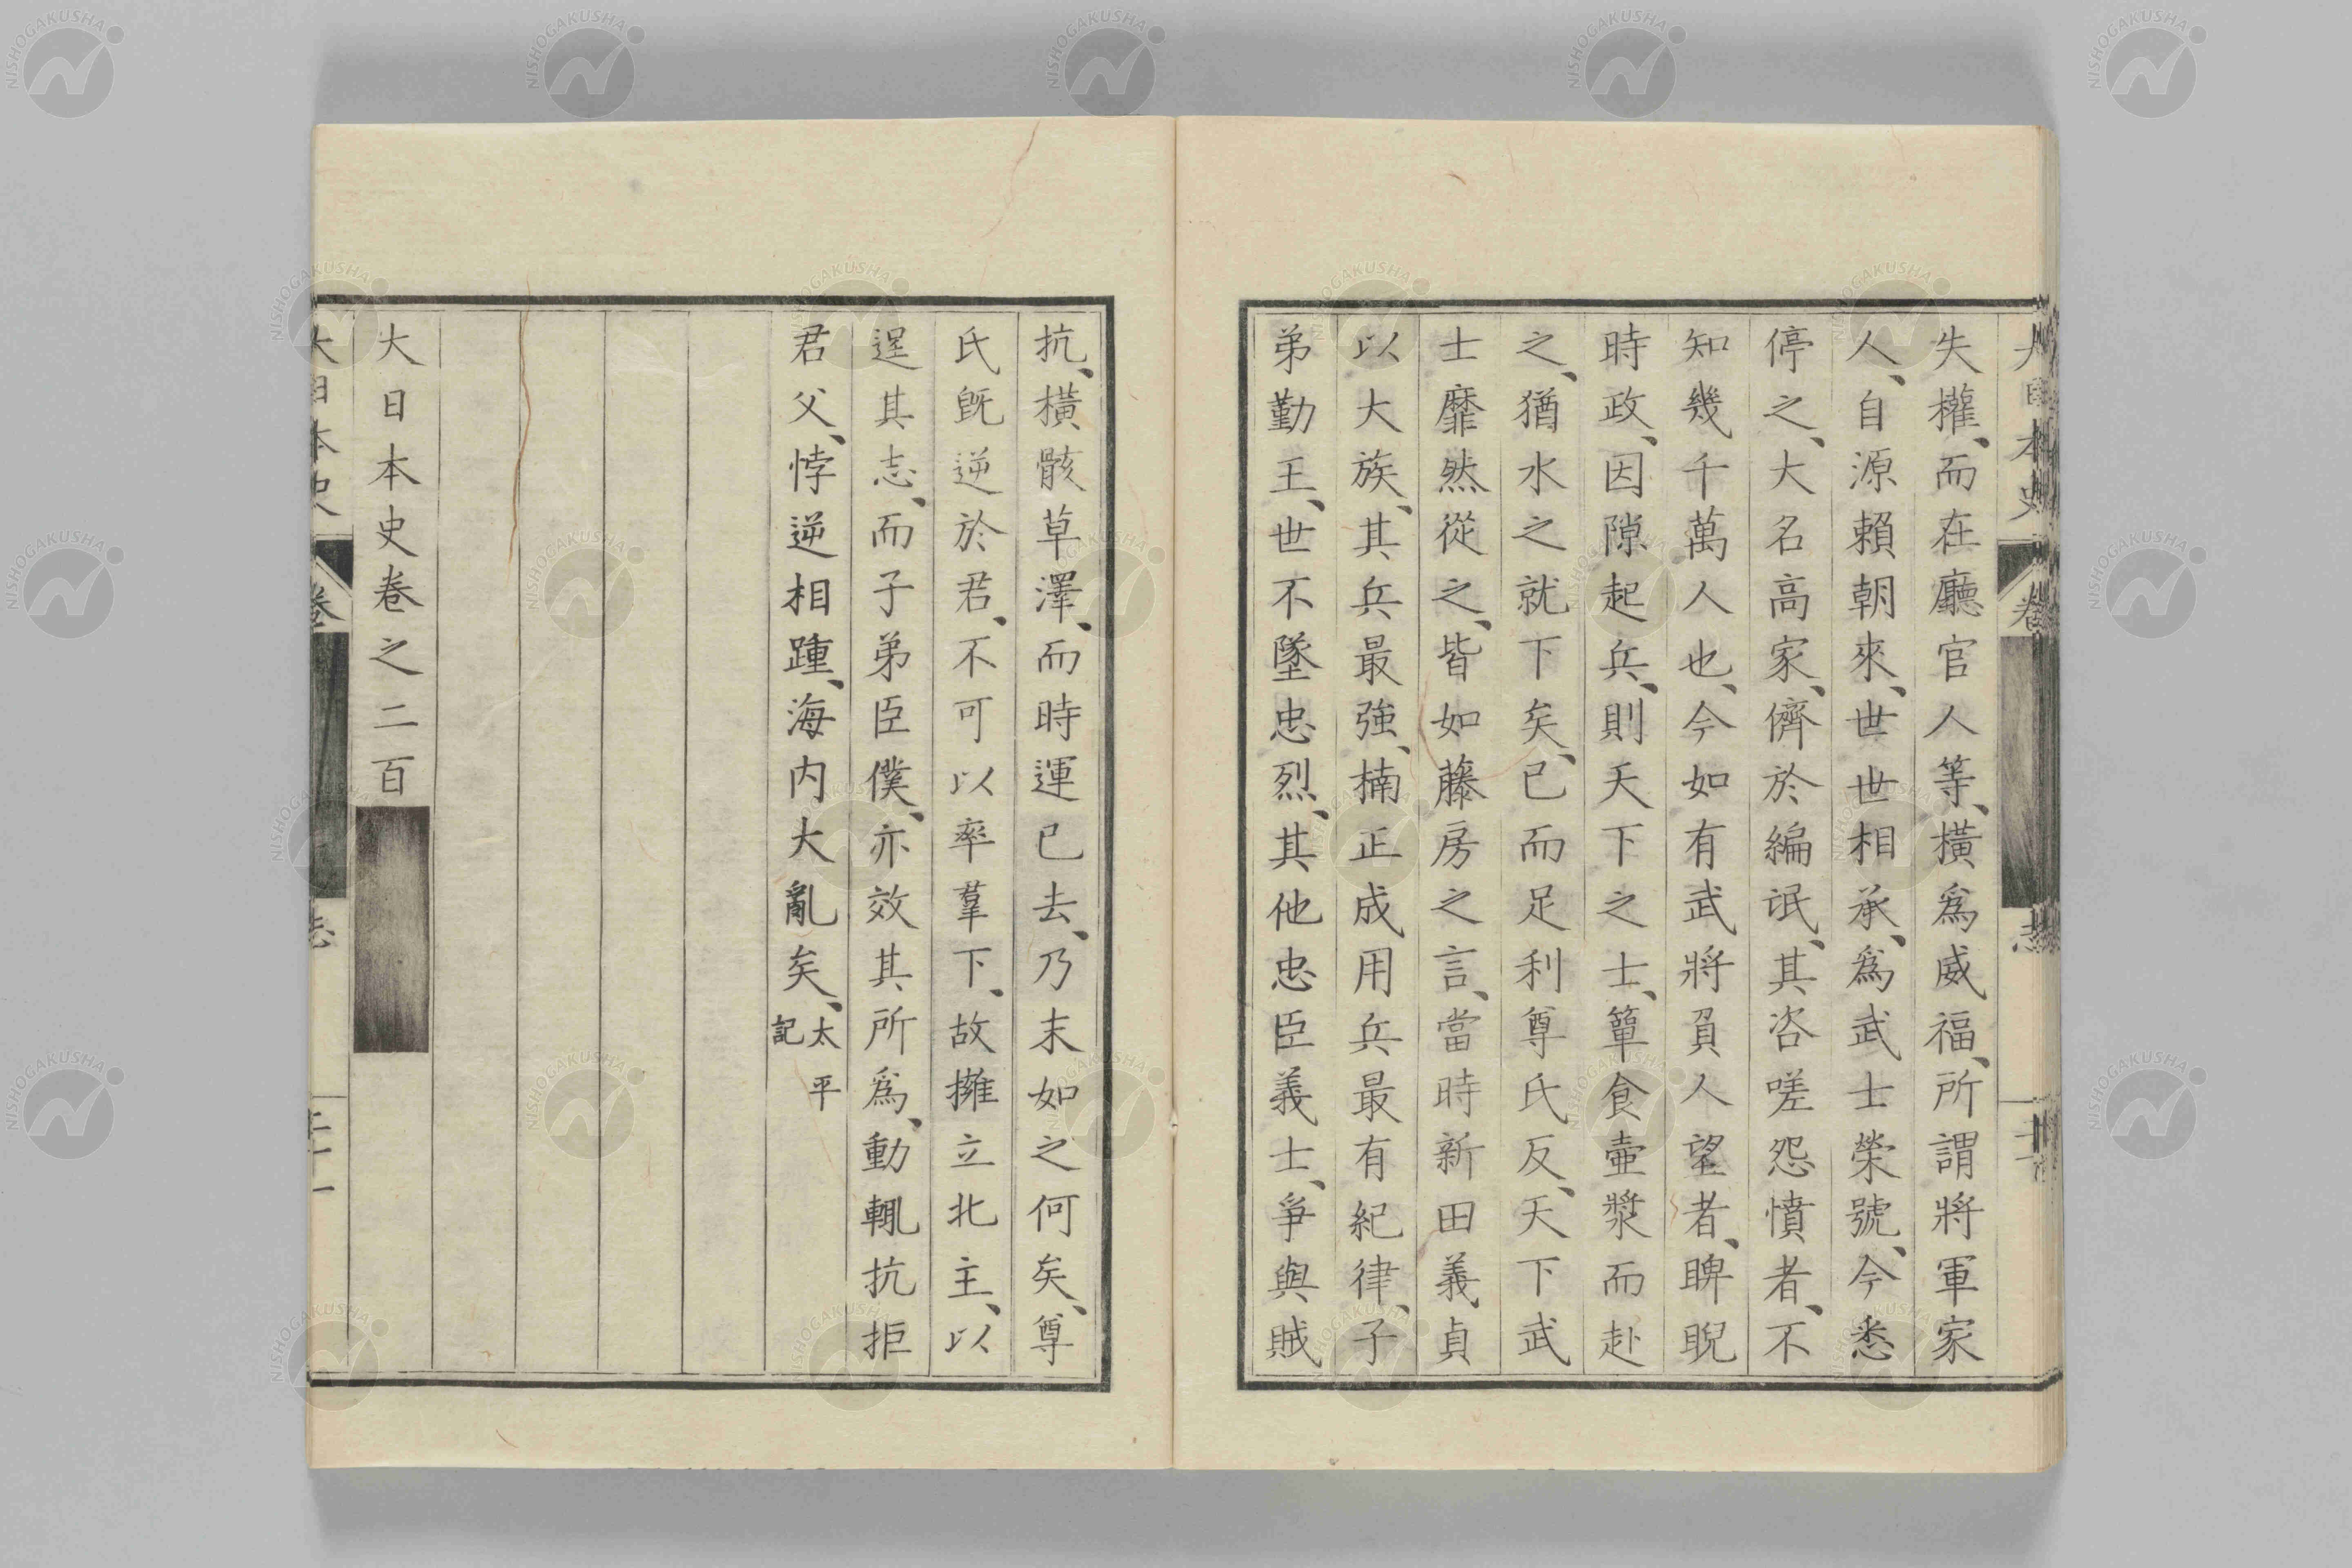 失權、而在廳官人等、橫爲威福、所謂將軍家
人、自源賴朝來、世世相承、爲武士榮號、今悉
停之、大名高家、儕於編氓、其咨嗟怨憤者、不
知幾千萬人也、今如有武將負人望者、睥睨
時政、因隙起兵、則天下之士、簞食壷漿而赴
之、猶水之就下矣、已而足利尊氏反、天下武
士靡然從之、皆如藤房之言、當時新田義貞
以大族、其兵最強、楠正成用兵最有紀律、子
弟勤王、世不墜忠烈、其他忠臣義士、爭與賊
抗、橫骸草澤、而時運已去、乃末如之何矣、尊
氏旣逆於君、不可以率羣下、故擁立北主、以
逞其志、而子弟臣僕、亦效其所爲、動輒抗拒
君父、悖逆相踵、海内大亂矣、太平記
大日本史卷之二百
大日本史 卷 志
NISHOGAKUSHA